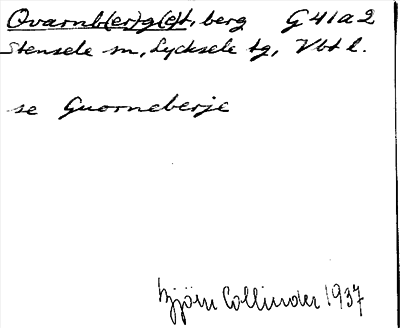 Qvarnb(er)g(e)t, berg G 41 a 2
Stensele sn, Lycksele tg, Vbt l.
se Guorneberje
Björn Collinder 1937